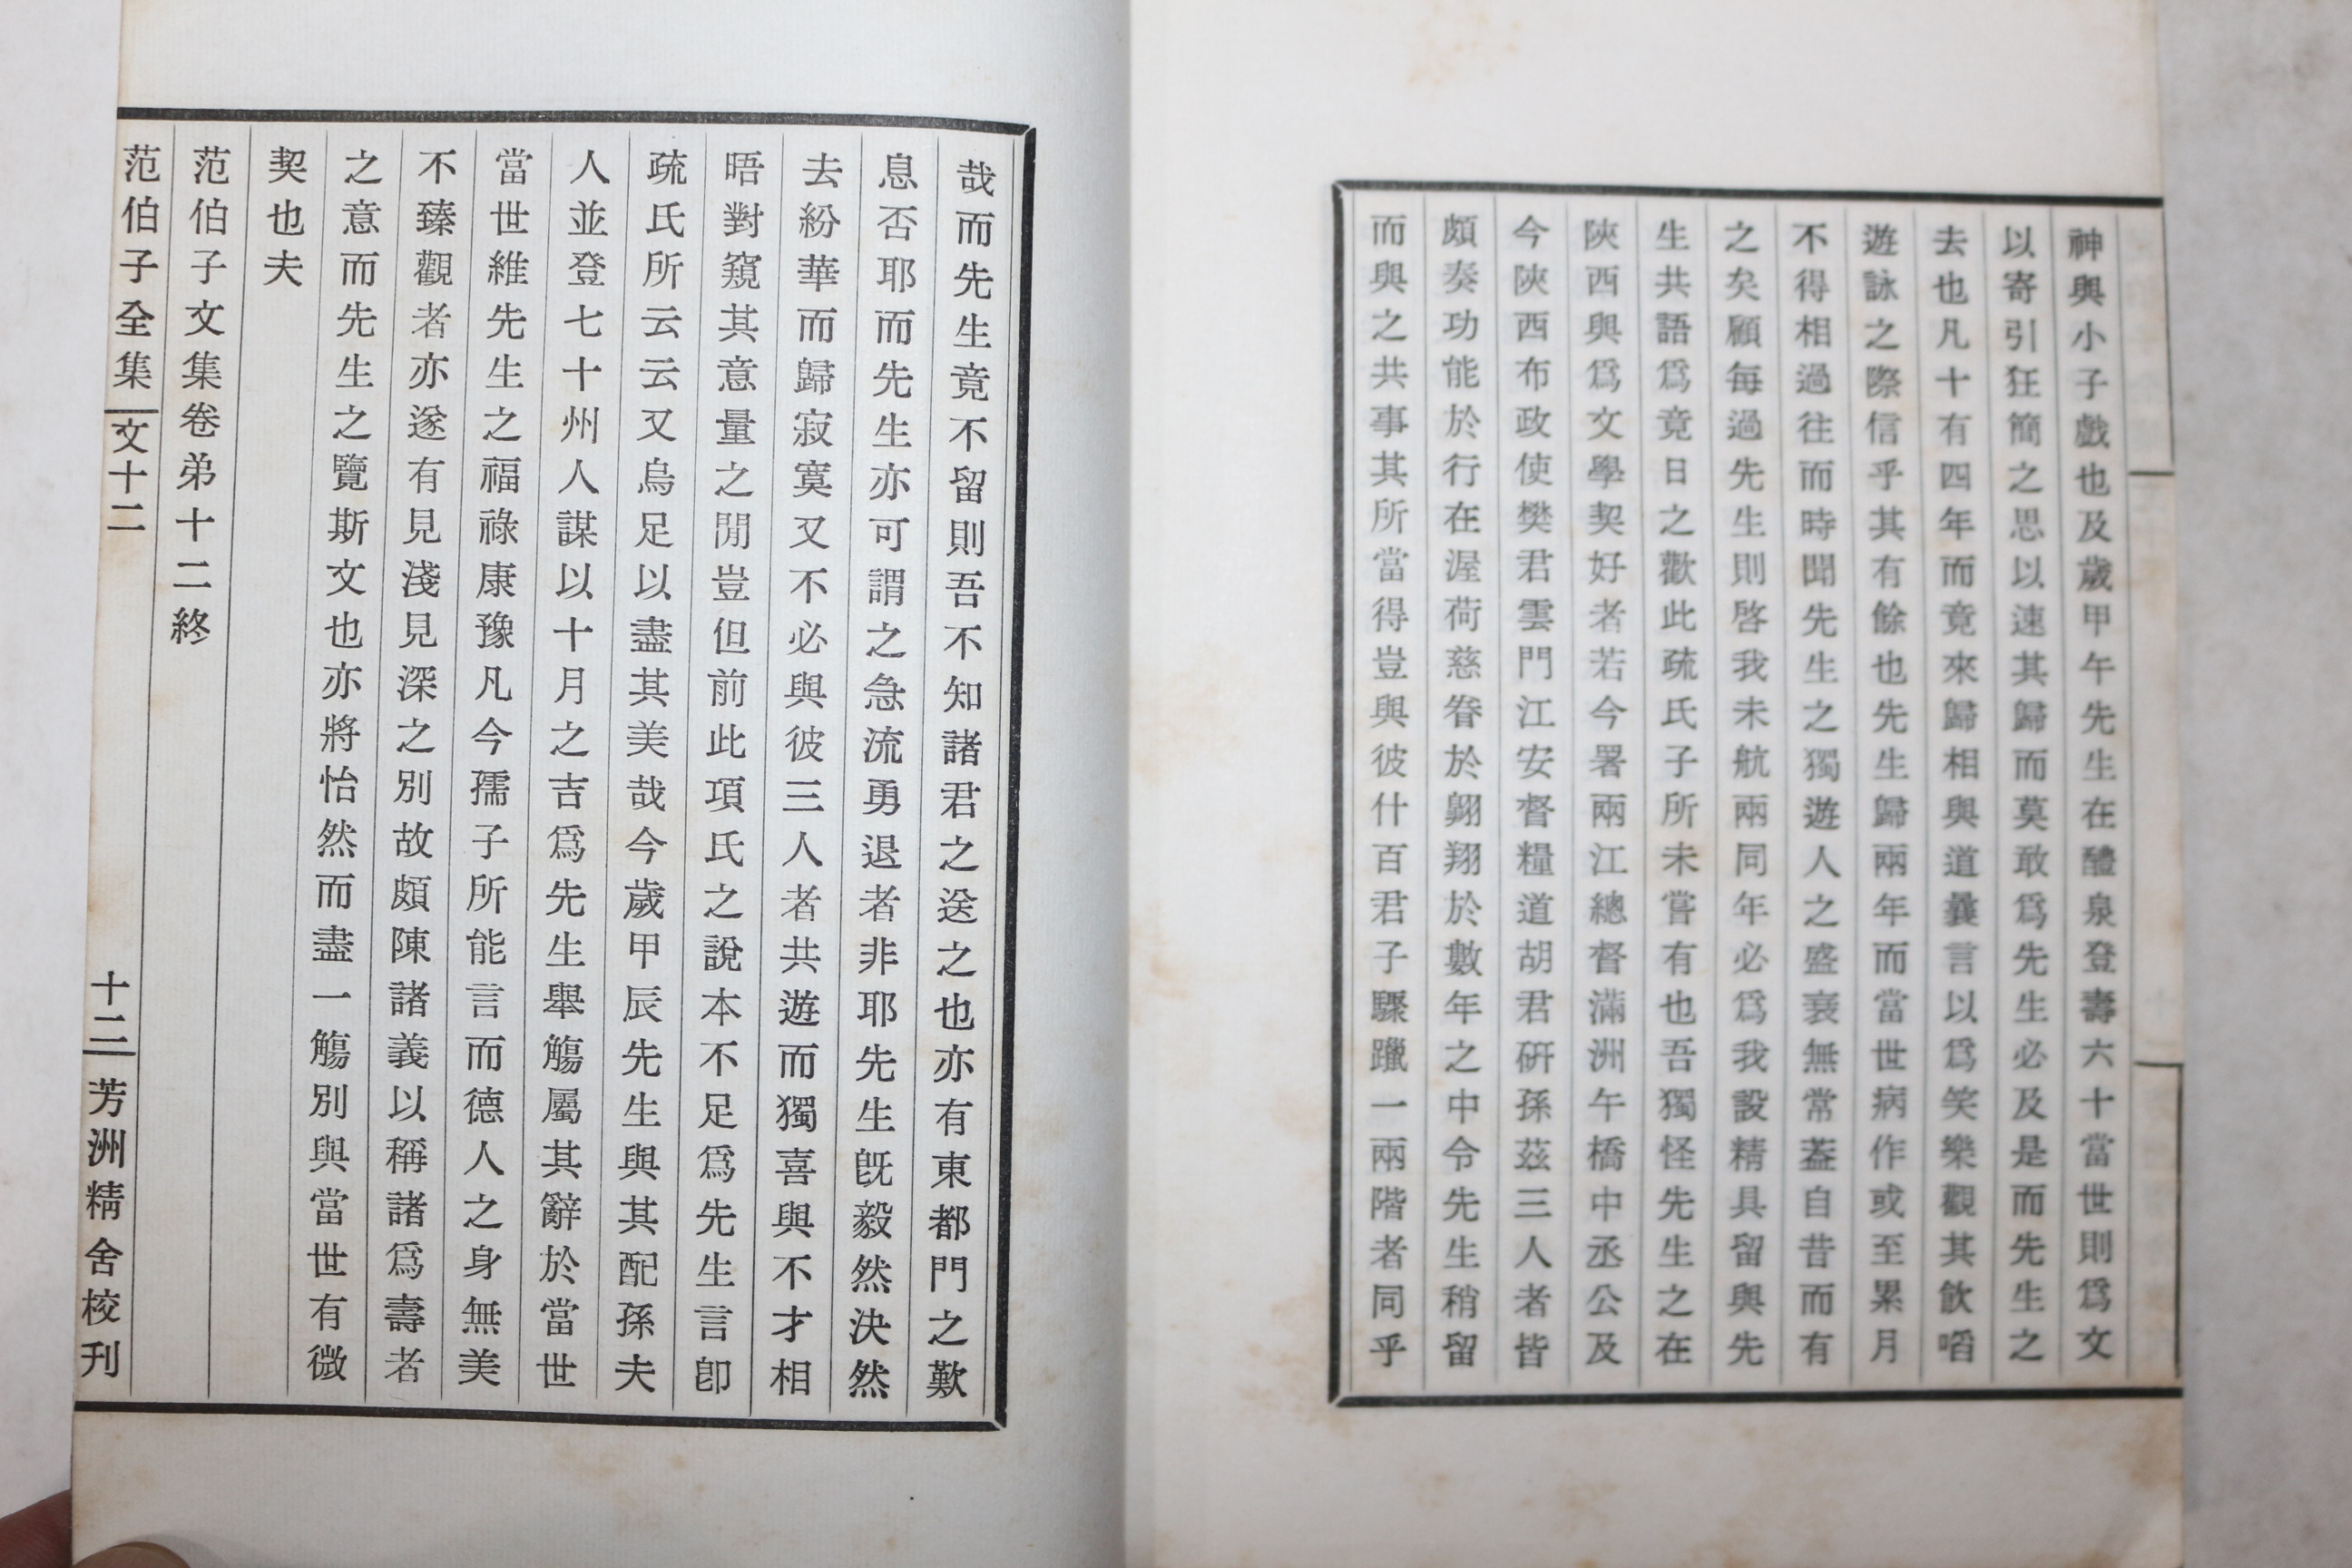 神與小子戲也及歲甲午先生在醴泉登壽六十當世則爲文
以寄引狂簡之思以速其歸而莫敢爲先生必及是而先生之
去也凡十有四年而竟來歸相與道曩言以爲笑樂觀其飮啗
遊詠之際信乎其有餘也先生歸兩年而當世病作或至累月
不得相過往而時聞先生之獨遊人之盛衰無常葢自昔而有
之矣顧每過先生則啓我未航兩同年必爲我設精具留與先
生共語爲竟日之歡此疏氏子所未嘗有也吾獨怪先生之在
陝西與爲文學契好者若今署兩江總督滿洲午橋中丞公及
今陝西布政使樊君雲門江安督糧道胡君硏孫茲三人者皆
頗奏功能於行在渥荷慈眷於翺翔於數年之中令先生稍留
而與之共事其所當得豈與彼什百君子驟躐一兩階者同乎
哉而先生竟不留則吾不知諸君之送之也亦有東都門之歎
息否耶而先生亦可謂之急流勇退者非耶先生旣毅然決然
去紛華而歸寂寞又不必與彼三人者共遊而獨喜與不才相
晤對窺其意量之閒豈但前此項氏之說本不足爲先生言卽
疏氏所云云又烏足以盡其美哉今歲甲辰先生與其配孫夫
人並登七十州人謀以十月之吉爲先生舉觴屬其辭於當世
當世維先生之福祿康豫凡今孺子所能言而德人之身無美
不臻觀者亦遂有見淺見深之別故頗陳諸義以稱諸爲壽者
之意而先生之覽斯文也亦將怡然而盡一觴別與當世有微
契也夫
范伯子文集卷弟十二終
范伯子全集 文十二 十二 芳洲精舍校刊